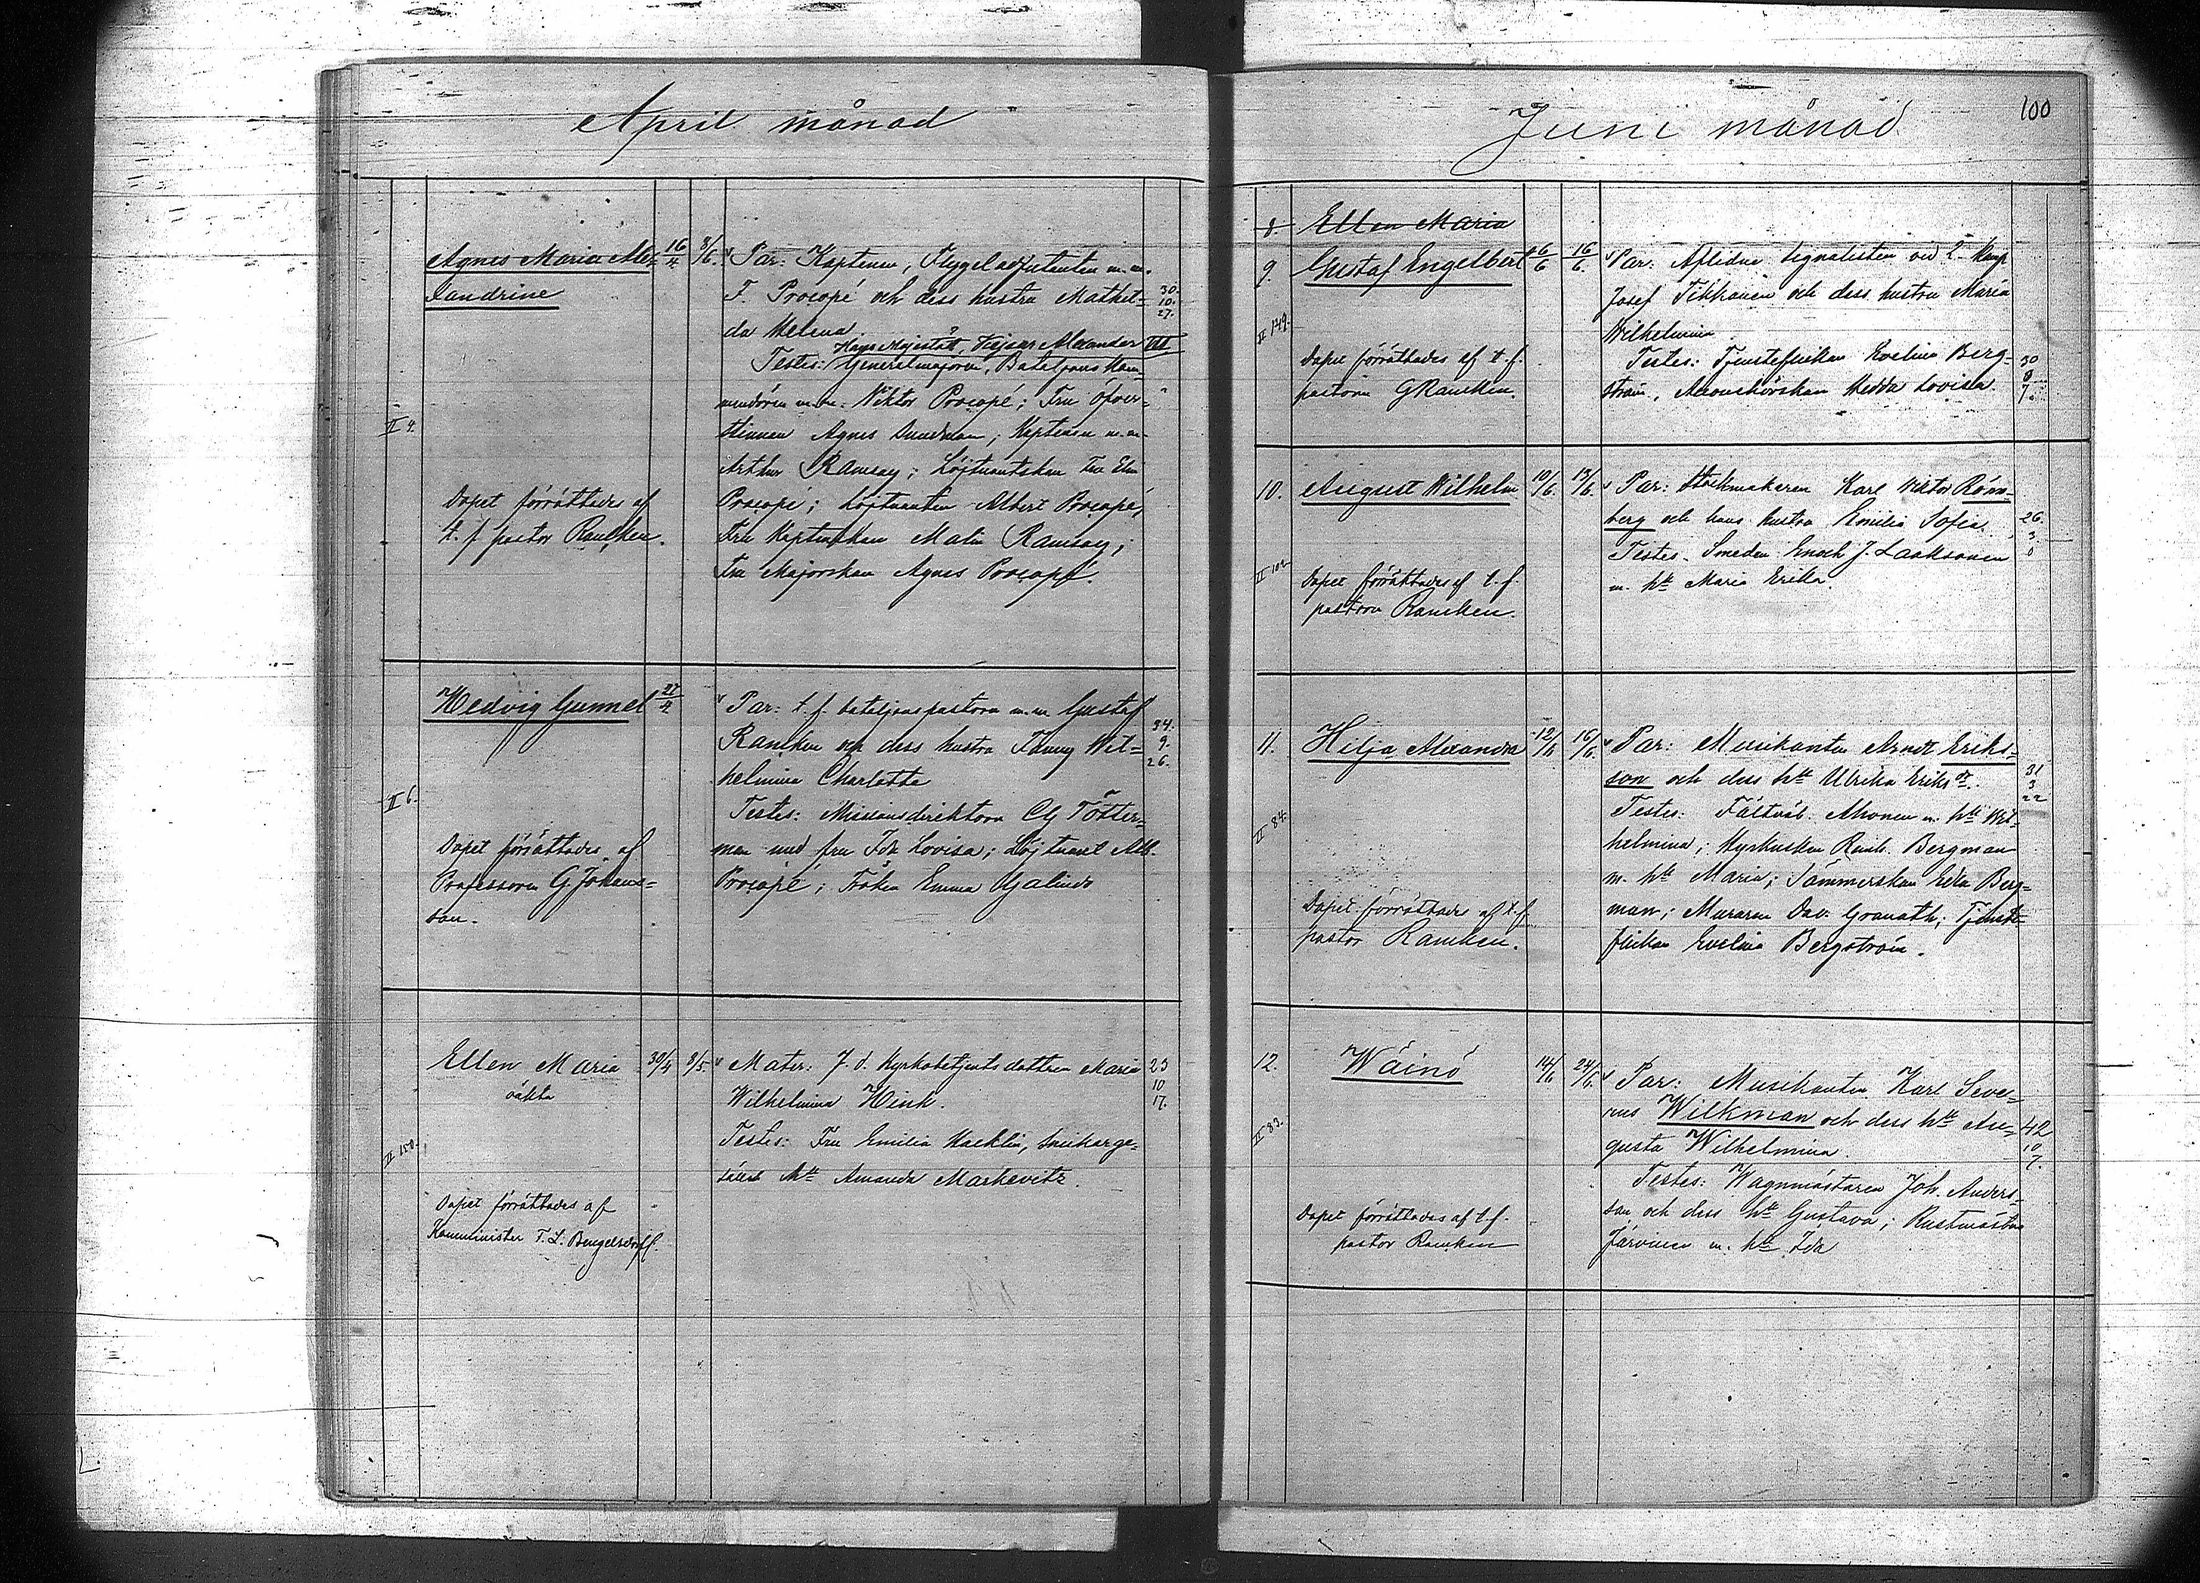 April månad
Agnes Maria Ale=
xandrine
16/4
8/6.
Par: Kaptenen, Flygeladjutanten m.m.
F. Procopé och dess hustru Mathil=
da Helena.
30.
10.
27.
Hans Majestät, Kejsar Alexander III
Testes: Generalmajoren, Bataljons Kom=
mendören m.m. Viktor Procopé; Fru Öfver=
stinnan Agnes Sundman; Kaptenen m.m.
Arthur Ramsay; Löjtnantskan Fru Elin
Procopé; Löjtnanten Albert Procopé,
Fru Kaptenskan Malin Ramsay;
Fru Majorskan Agnes Procopé.
II 4.
Dopet förrättades af
t. f. pastor Rancken.
Hedvig Gunnel
27/4
Par: t. f. bataljonspastorn m.m. Gustaf
Rancken och dess hustru Fanny Wil=
helmina Charlotta
34.
9.
26.
Testes: Missionsdirektorn Cl. Tötter=
man med fru Ida Lovisa; Löjtnant Alb.
Procopé; Fröken Emma Galindo
II 6.
Dopet förrättades af
Professoren G. Johans=
son.
Ellen Maria
oäkta
30/4
8/5.
Mater: F. d. Kyrkobetjents dottern Maria
Wilhelmina Hink.
23
10
17.
Testes: Fru Emilia Hacklin, Snickarge=
sällens h:u Amanda Markevitz.
III 158.
Dopet förrättades af
Kamminister T. L. Bengelsdorff.
Juni månad
100
8. Ellen Maria
9.
Gustaf Engelbert
6/6
16/6.
Par: Aflidne Signalisten vid 2. Komp
Josef Tikkanen och dess hustru Maria
Wilhelmina
Testes: Tjensteflickan Evelina Berg=
ström, Hedda Lovisa.
30
8
7.
II 149.
Dopet förrättades af t. f.
pastorn G Rancken.
10.
August Wilhelm
10/6.
13/6.
Par: Stockmakaren Karl Viktor Röm=
berg och hans hustru Emilia Sofia.
26.
3
0
Testes. Smeden Enoch J. Laaksonen
m. h:u Maria Erika.
II 102.
Dopet förrättades af t. f.
pastorn Rancken.
11.
Hilja Alexandra
12/6
16/6.
Par: Musikanten Arndt Eriks=
son och dess h:u Ulrika Eriksdr.
31
3
22
Testes: Fältväb. Ahonen m. h:u Wil=
helmina; Kyrkusken Reinh. Bergman
m. h:u Maria; Sömmerskan Edla Berg=
man; Muraren Dav. Granath; Tjenste=
flickan Evelina Bergström.
II 84.
Dopet förrättades af t. f.
pastor Rancken.
12.
Wäinö
14/6
24/6.
Par: Musikanten Karl Seve=
rus Wilkman och dess h:u Au=
gusta Wilhelmina.
42
10
7.
Testes: Wagnmästaren Joh. Anders=
son och dess h:u Gustava; Rustmästaren
Järvinen m. h:u Ida
II 83.
Dopet förrättades af t. f.
pastor Rancken